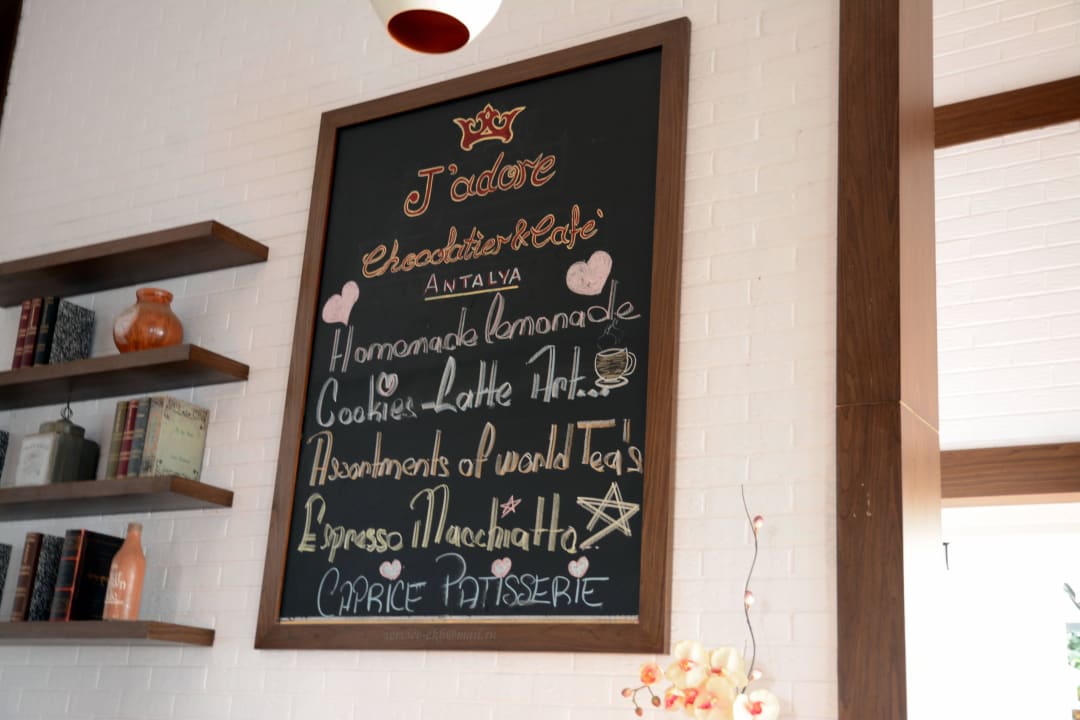 J'adore
Chocolatier & Cafe`
ANTALYA
Homemade lemonade
Cookies - Latte Art...
Assortments of world Tea's
Espresso Macchiatto
CAPRICE PATISSERIE
service-ekb@mail.ru